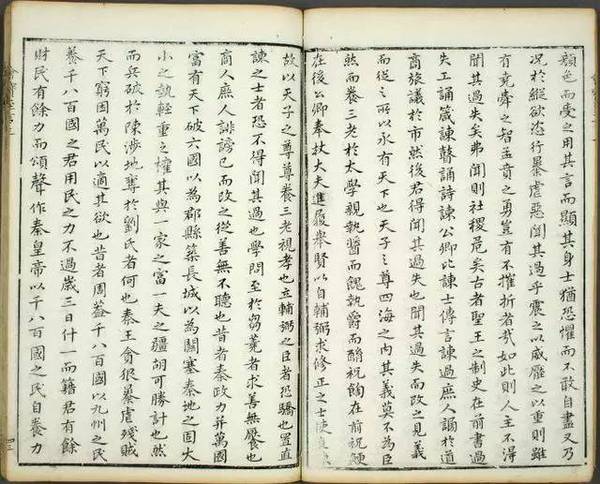 顏色而受之用其言而顯其身士猶恐懼而不敢自盡又乃
况於縱欲恣行暴虐惡聞其過乎震之以威靡之以重則雖
有堯舜之智孟賁之勇豈有不摧折者哉如此則人主不得
聞其過失矣弗聞則社稷危矣古者聖王之制史在前書過
失工誦箴諫瞽誦詩諫公卿比諫士傳言諫過庶人謗於道
商旅議於市然後君得聞其過失也聞其過失而改之見義
而從之所以永有天下也天子之尊四海之内其義莫不為臣
然而養三老於太學親執醬而餽執爵而酳祝飽在前祝鯁
在後公卿奉杖大夫進履舉賢以自輔弼求修正之士使直
故以天子之尊尊養三老視孝也立輔弼之臣者恐驕也置直
諫之士者恐不得聞其過也學問至於芻蕘者求善無饜也
商人庶人誹謗已而改之從善無不聽也昔者秦政力并萬國
富有天下破六國以為郡縣築長城以為關塞秦地之固大
小之執輕重之權其與一家之富一夫之彊胡可勝計也然
而兵破於陳涉地奪於劉氏者何也秦王貪狠暴虐殘賊
天下窮困萬民以適其欲也昔者周蓋千八百國以九州之民
養千八百國之君用民之力不過歲三日什一而籍君有餘
財民有餘力而頌聲作秦皇帝以千八百國之民自養力